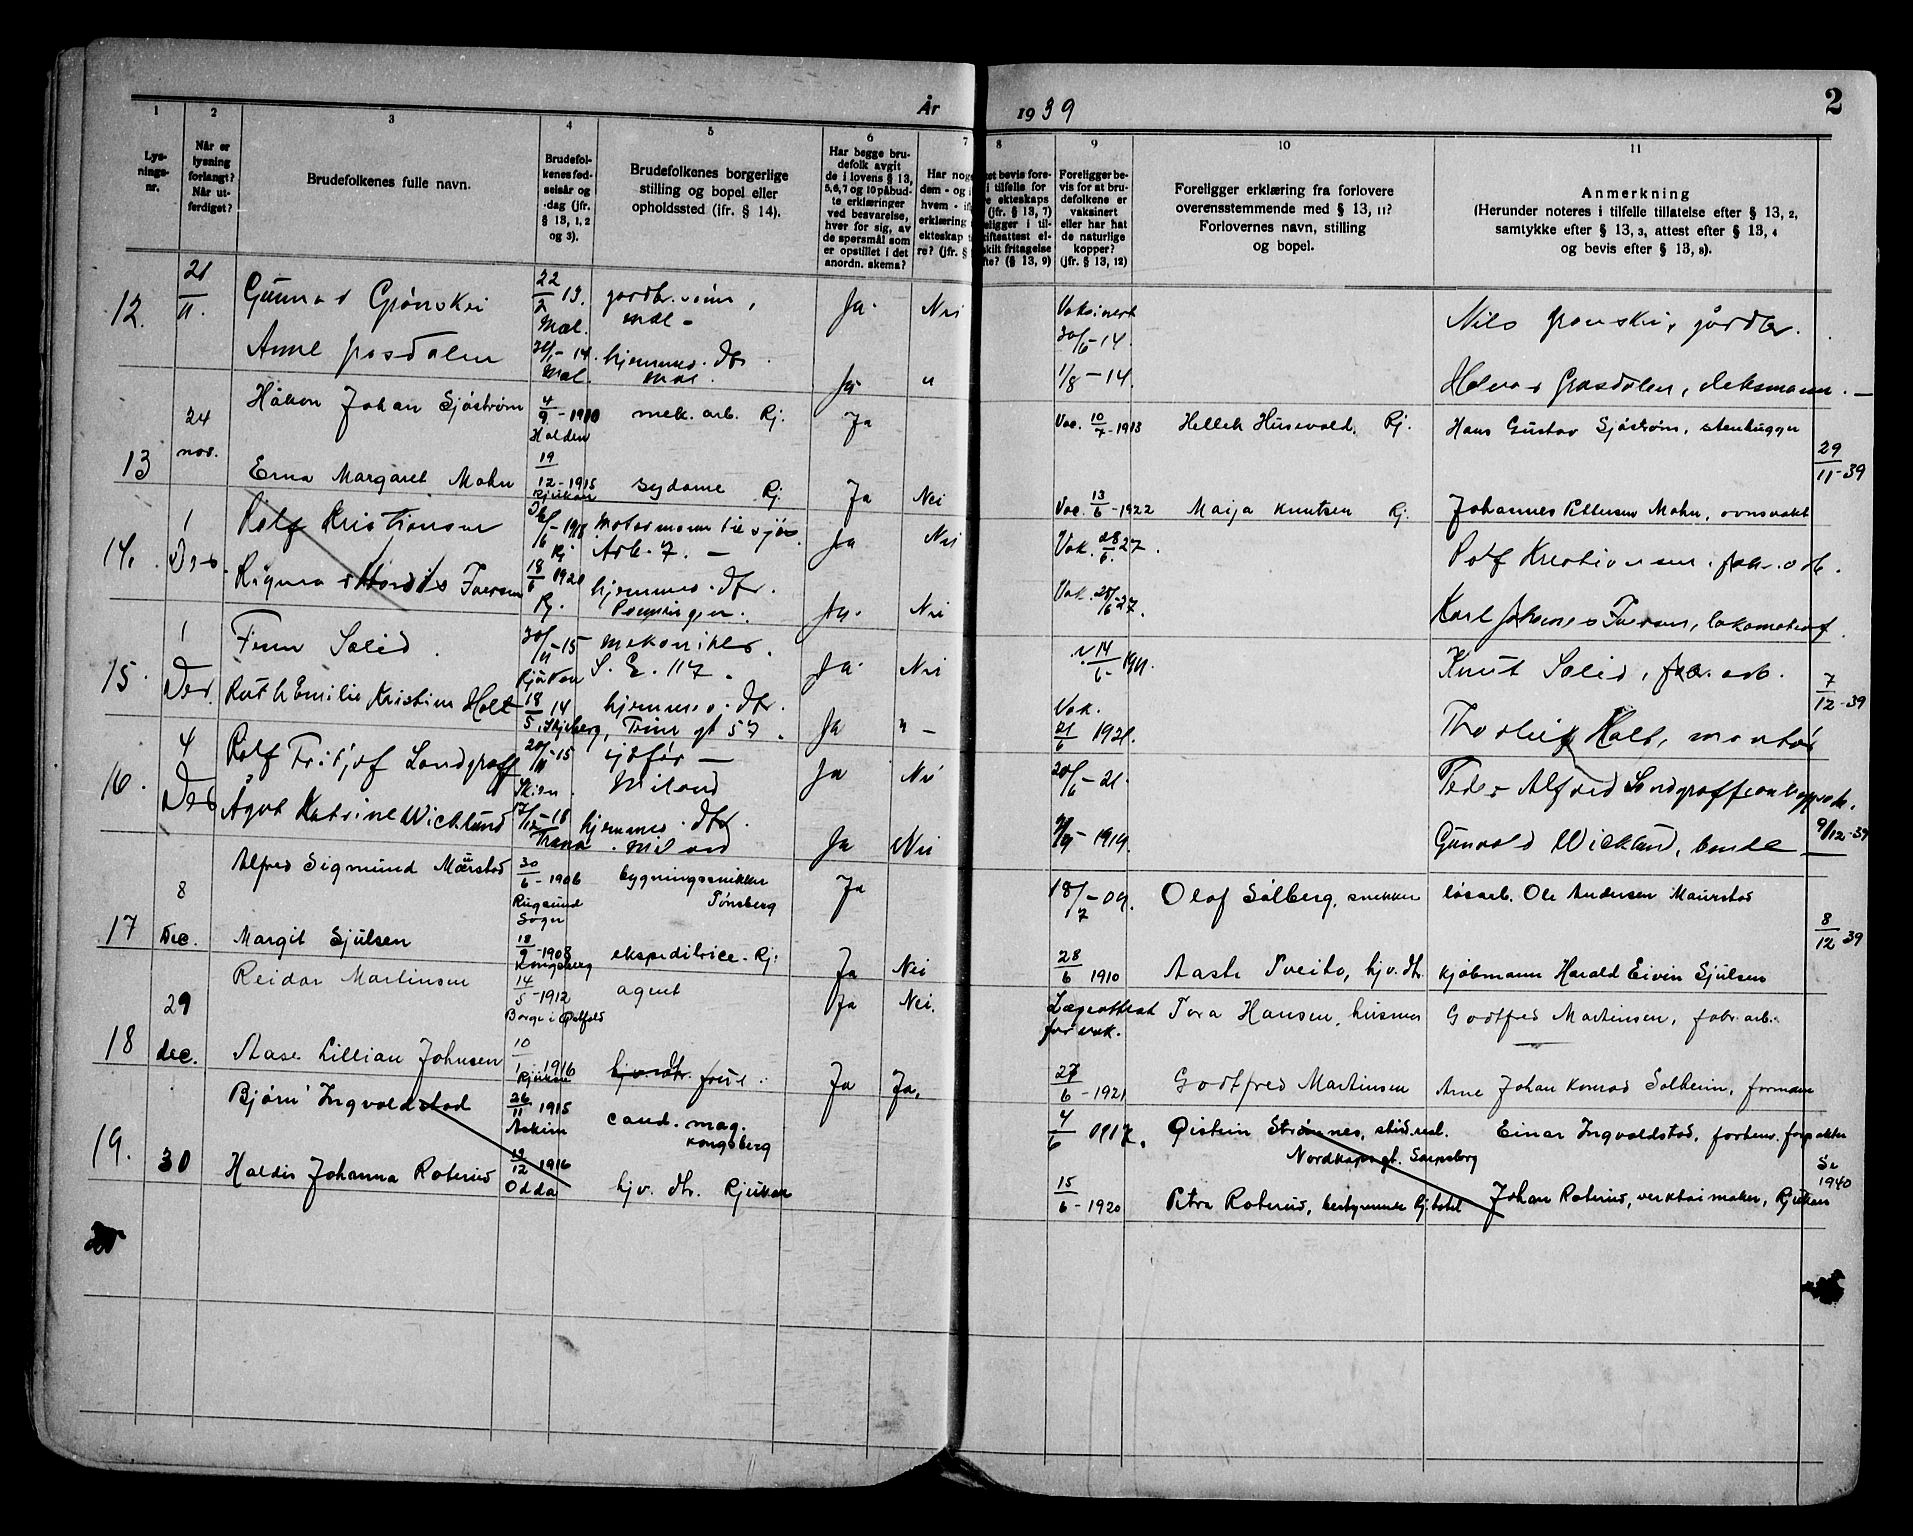 År 1939
2
1 2 3 4 5 6 7 8 9 10 11
Lys-
nings-
nr.
Når er
lysning
forlangt?
Når ut-
ferdiget?
Brudefolkenes fulle navn.
Brudefol-
kenes fød-
selsår og
-dag (jfr.
§ 13, 1, 2
og 3).
Brudefolkenes borgerlige
stilling og bopel eller
opholdssted (ifr. § 14).
Har begge bru-
defolk avgit
de i lovens § 13,
5, 6, 7 og 10 påbud-
te erklæringer
ved besvarelse,
hver for sig, av
de spørsmål som
er opstillet i det
anordn. skema?
Har nog
dem - og i
hvem - if
erklæring
ekteskap t
re? (jfr. §
et bevis fore-
i tilfelle for
e ekteskaps
(jfr. § 13, 7)
eligger i til-
ifteattest el-
skilt fritagelse
fte? (§ 13, 9)
Foreligger be-
vis for at bru-
defolkene er
vaksinert
eller har hat
de naturlige
kopper?
(jfr. § 13, 12)
Foreligger erklæring fra forlovere
overensstemmende med § 13, 11?
Forlovernes navn, stilling
og bopel.
Anmerkning
(Herunder noteres i tilfelle tillatelse efter § 13, 2,
samtykke efter § 13, 3, attest efter § 13, 4
og bevis efter § 13, 8).
12. 21/11. Gunnar Grønskei 22/2 13. Mæl. Mæl - Ja. Nei Vaksinert 30/6-14 Nils
Anne Grasdalen Mæl. hjemmev. dtr. Mæl. Ja " 1/8-14. Halvor Grasdalen,
13 24 nov. Håkon Johan Sjöström 4/9-1910 Halden mek. arb. Rj. Ja Vac. 10/7-1913 Hellek Husevold, Rj. Hans Gustav Sjöström, stenhugger
29/11-39
Erna Margaret Mohn 19/12-1915 Rjukan sydame Rj. Ja Nei Vac. 13/6-1922 Maija Knutsen Rj. Johannes Pettersen Mohn, ovnsvakt
14. 1 Des. Rolf Kristiansen Rj. Ja Nei Vak. 28/6 27. Rolf Kristiansen, arb.
Iversen 18/6 1920 Rj. hjemmev. dtr. Ja. Nei Vak. Karl Johannes Iversen,
15. 1 Des. Finn Solid. 30/11-15 Rjukan mekaniker. S. E. 117. Ja. Nei 14/6 Knut Solid, arb.
7/12-39
Ruth Emilie Kristine Holt 18/5 14 Skjeberg, hjemmev. dtr. 57. Ja " - Vak. 21/6 1921. Thorleif Holt, montør
16. 4 Des Rolf Fritjof Landgraff Skien. sjåfør - Miland Ja Nei 20/6-21. Peder Alfred Landgraff
Ågot Katrine Wicklund 17/12-18 hjemmev. dtr. Miland Ja Nei 1919. Gunvald Wicklund, bonde
9/12-39
17 8 Dec. Alfred Sigmund Maurstad 30/6-1906 Rugsund Sogn bygningssnikker Tønsberg Ja 18/7-09. Olaf Sólberg, snekker løsarb. Ole Andersen Maurstad
8/12 39
Margit Sjulsen 18/9-1908 Kongsberg ekspeditrice - Rj. Ja Nei 28/6 1910 Aaste Tveito, hjv. dtr. kjøbmann Harald Eivin Sjulsen
18 29 dec. Reidar Martinsen 14/5-1912 Borge i Østfold agent Ja Nei. Lægeattest for vak. Tora Hansen, husmor Godtfred Martinsen, fabr. arb.
Aase Lillian Johnsen 10/1 1916 Rjukan hjv. dtr. frue Ja Ja, 27/6-1921 Godtfred Martinsen Arne Johan Konrad Solheim, formann
19. 30 Bjørn Ingvoldstad 26/11 1915 Askim cand. mag. Kongsberg 4/6 1917. Øistein Strømnes, stud. real. Nordkapsgt. Sarpsborg Einar Ingvoldstad, forhenv.
Se 1940
Haldis Johanna Roterud 19/12 1916 Odda hjv. dtr. Rjukan 15/6-1920 Petra Roterud, bestyrerinde Rj. hotel Johan Roterud, verktøimaker, Rjukan